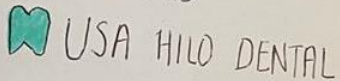 USA HILO DENTAL